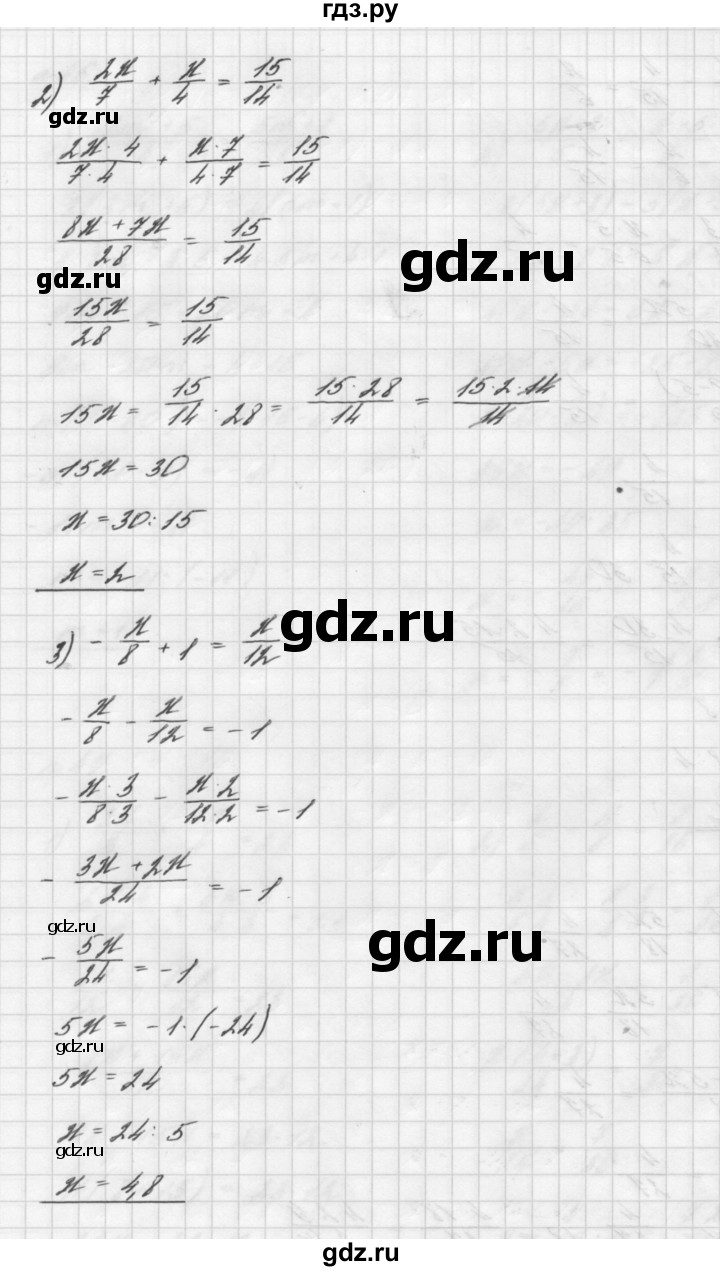 гдз.ру
2) 2x/7 + x/4 = 15/14
gdz.ru
2x·4/7·4 + x·7/4·7 = 15/14
8x+7x/28 = 15/14
gdz.ru
gdz.ru
15x/28 = 15/14
15x = 15/14 · 28 = 15·28/14 = 15·2·14/14
15x = 30
x = 30:15
x = 2
gdz.ru
3) - x/8 + 1 = x/12
- x/8 - x/12 = -1
- x·3/8·3 - x·2/12·2 = -1
- 3x+2x/24 = -1
gdz.ru
gdz.ru
- 5x/24 = -1
5x = -1·(-24)
gdz.ru
5x = 24
x = 24:5
gdz.ru
x = 4,8
gdz.ru